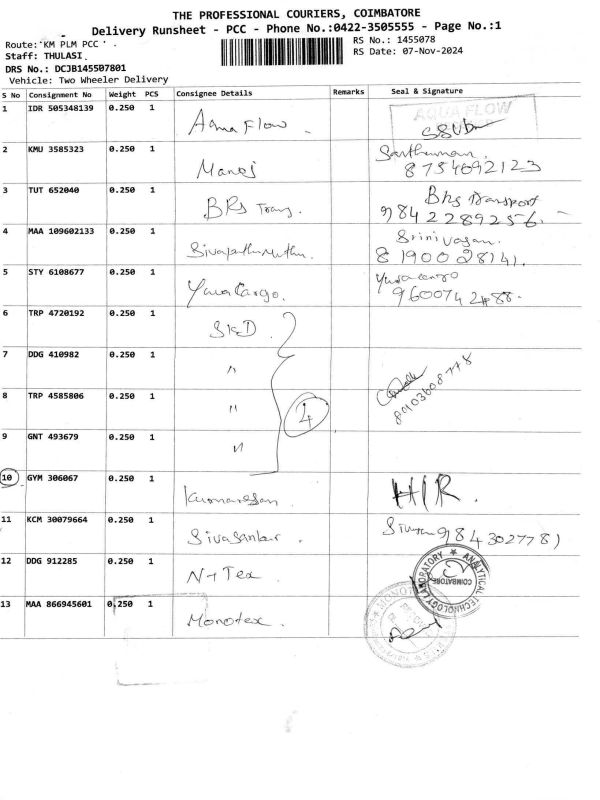 THE PROFESSIONAL COURIERS, COIMBATORE
Delivery Runsheet - PCC - Phone No.:0422-3505555 - Page No.:1
Route: KM PLM PCC
RS No.: 1455078
Staff: THULASI
RS Date: 07-Nov-2024
DRS No.: DCJB145507801
Vehicle: Two Wheeler Delivery
S No Consignment No Weight PCS Consignee Details Remarks Seal & Signature
1 IDR 505348139 0.250 1 Aqua Flow AQUA FLOW
2 KMU 3585323 0.250 1 Manoj
8754692123
3 TUT 652040 0.250 1 BRS Trans. BRS Transport
9842289256
4 MAA 109602133 0.250 1 Srinivasan
8190028141.
5 STY 6108677 0.250 1 Yuva Cargo. Yuva cargo
6 TRP 4720192 0.250 1 SKD
7 DDG 410982 0.250 1 "
8 TRP 4585806 0.250 1 " 4
9 GNT 493679 0.250 1 "
10 GYM 306067 0.250 1 Kumaresan H/R.
11 KCM 30079664 0.250 1 Sivasankar
12 DDG 912285 0.250 1 N-Tex
ANALYTICAL TECHNOLOGY LABORATORY COIMBATORE
13 MAA 866945601 0.250 1 Monotex.